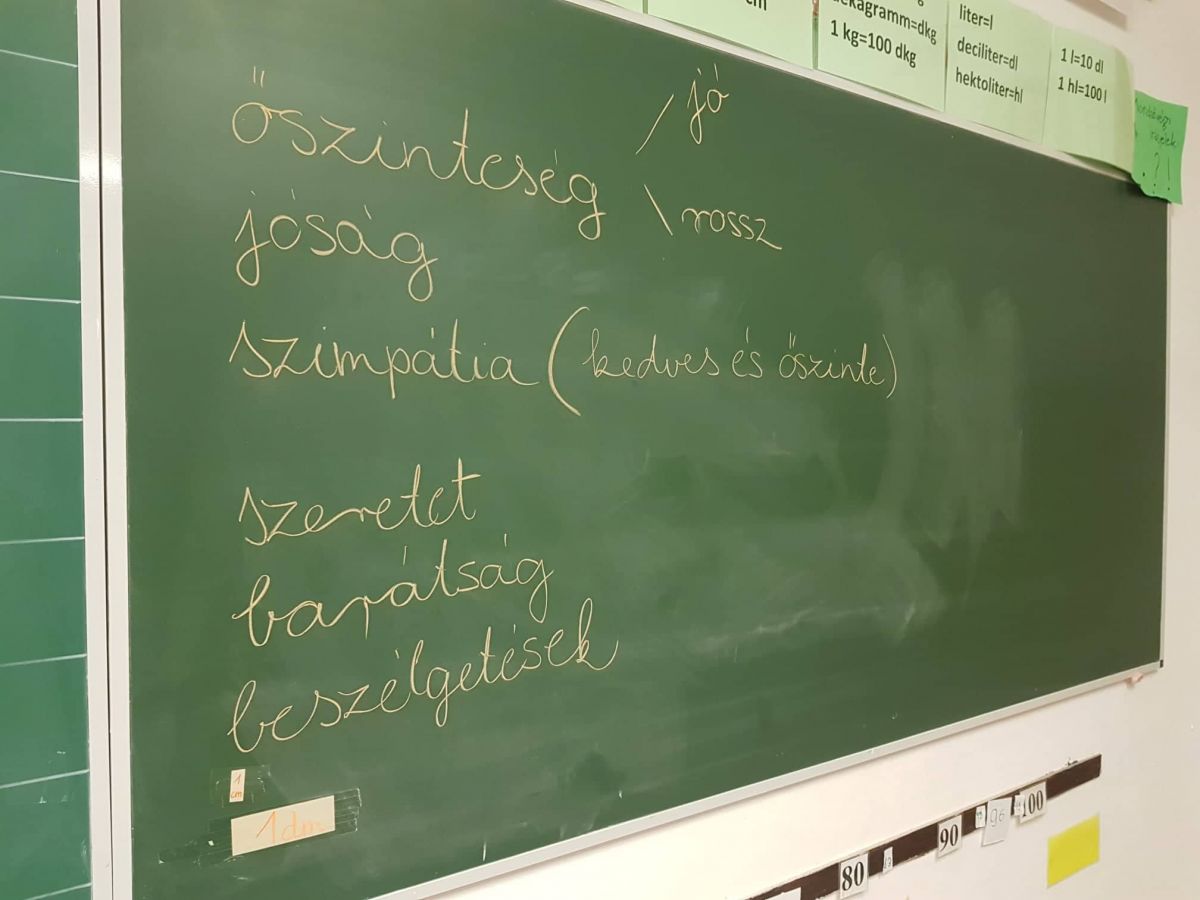 cm
dekagramm=dkg
1 kg=100 dkg
liter=l
deciliter=dl
hektoliter=hl
1 l=10 dl
1 hl=100 l
? !
jó
őszinteség
rossz
jóság
szimpátia (kedves és őszinte)
szeretet
barátság
beszélgetések
1
cm
1dm
80
90
96
100